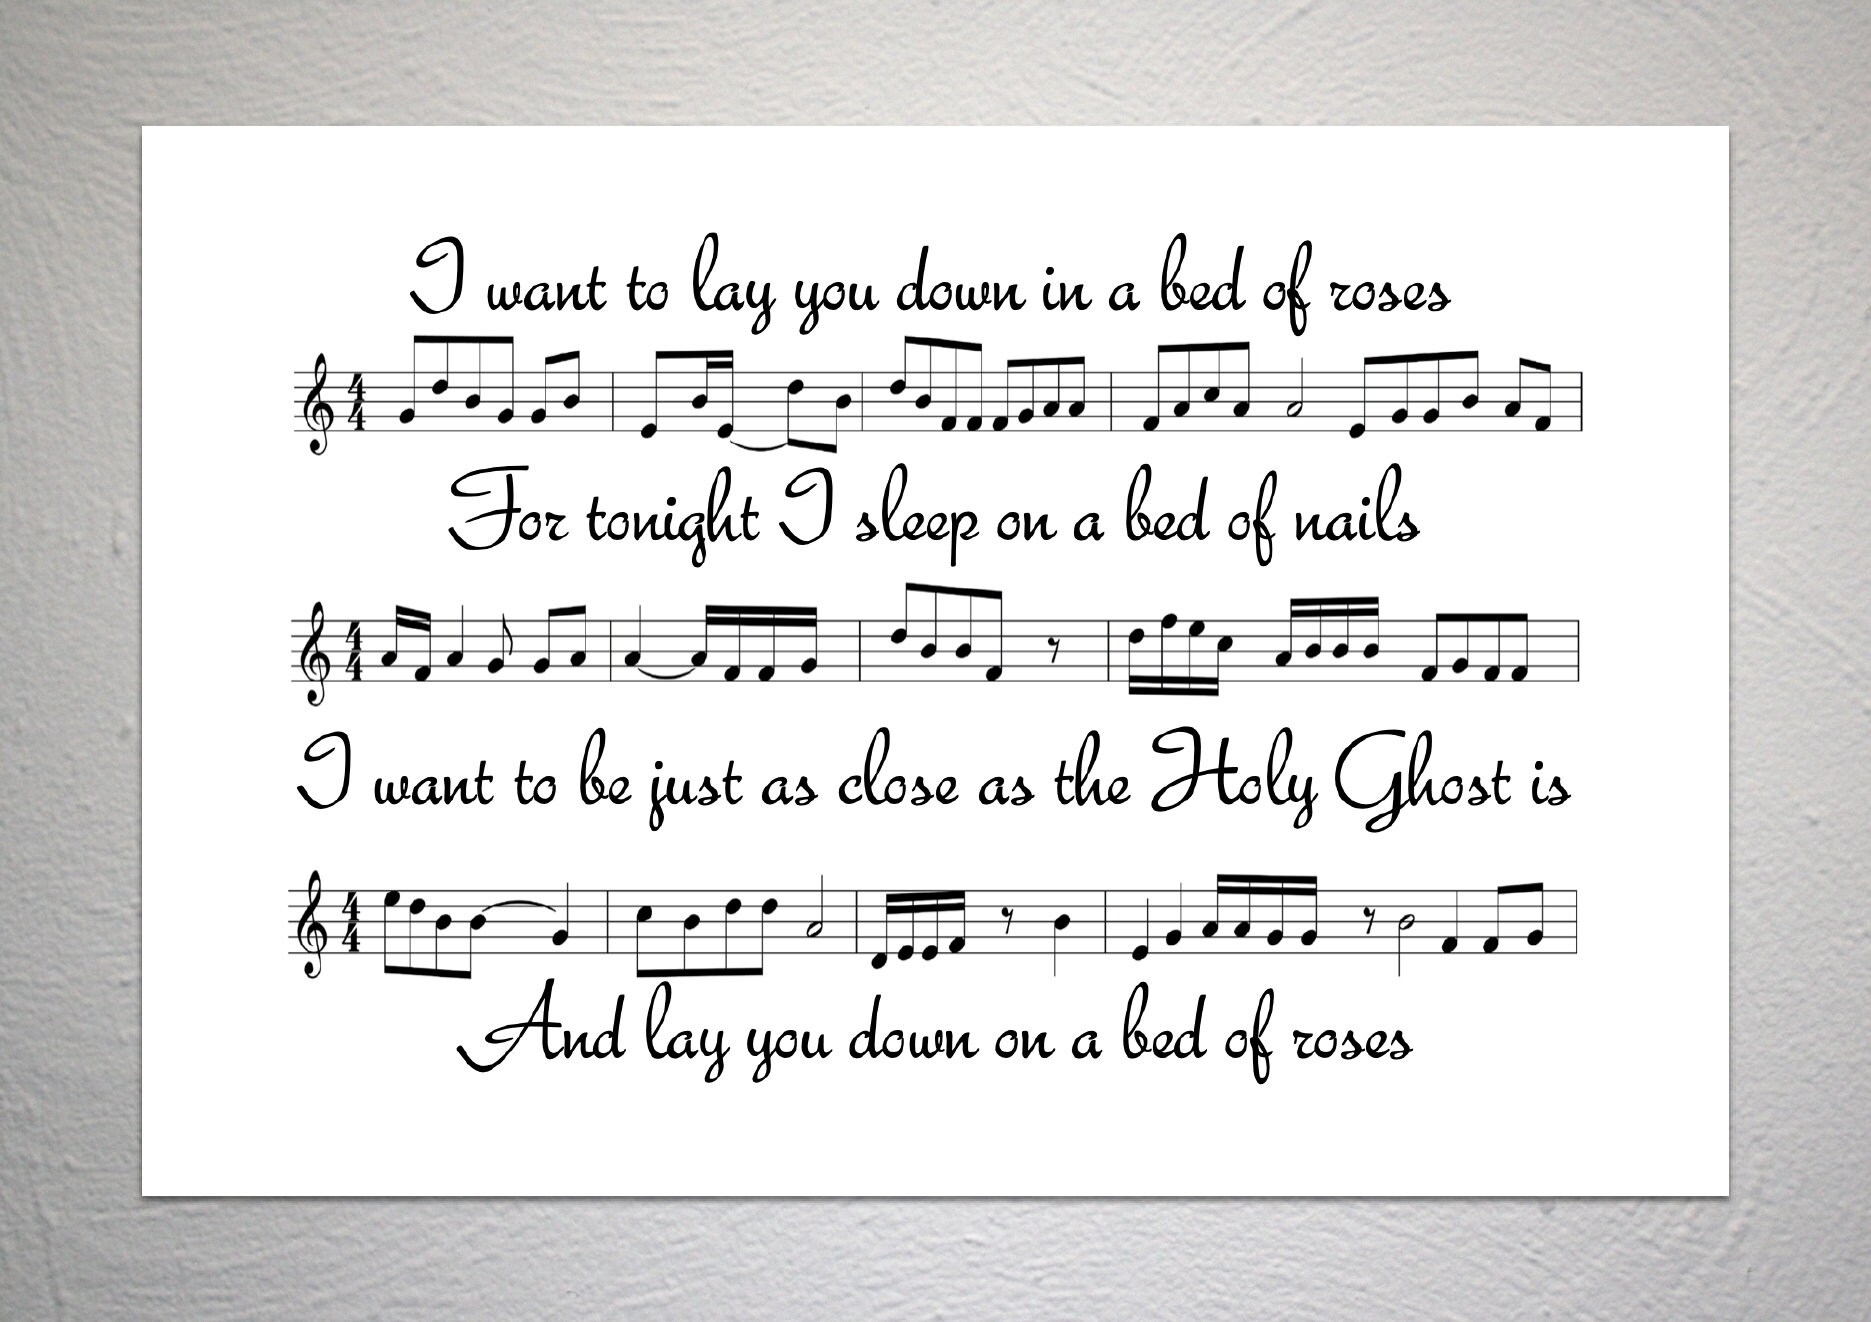 I want to lay you down in a bed of roses
4 4
For tonight I sleep on a bed of nails
4 4
I want to be just as close as the Holy Ghost is
4 4
And lay you down on a bed of roses